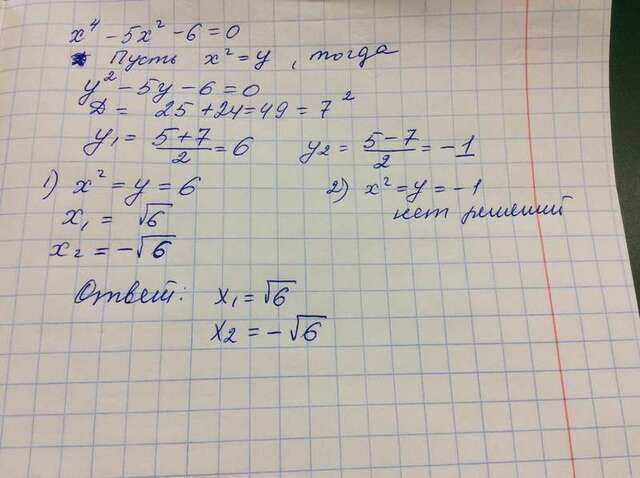 x⁴ - 5x² - 6 = 0
Пусть x² = y, тогда
y² - 5y - 6 = 0
Д = 25 + 24 = 49 = 7²
y₁ = (5+7)/2 = 6 y₂ = (5-7)/2 = -1
1) x² = y = 6 2) x² = y = -1
x₁ = √6 нет решений
x₂ = -√6
Ответ: x₁ = √6
x₂ = -√6